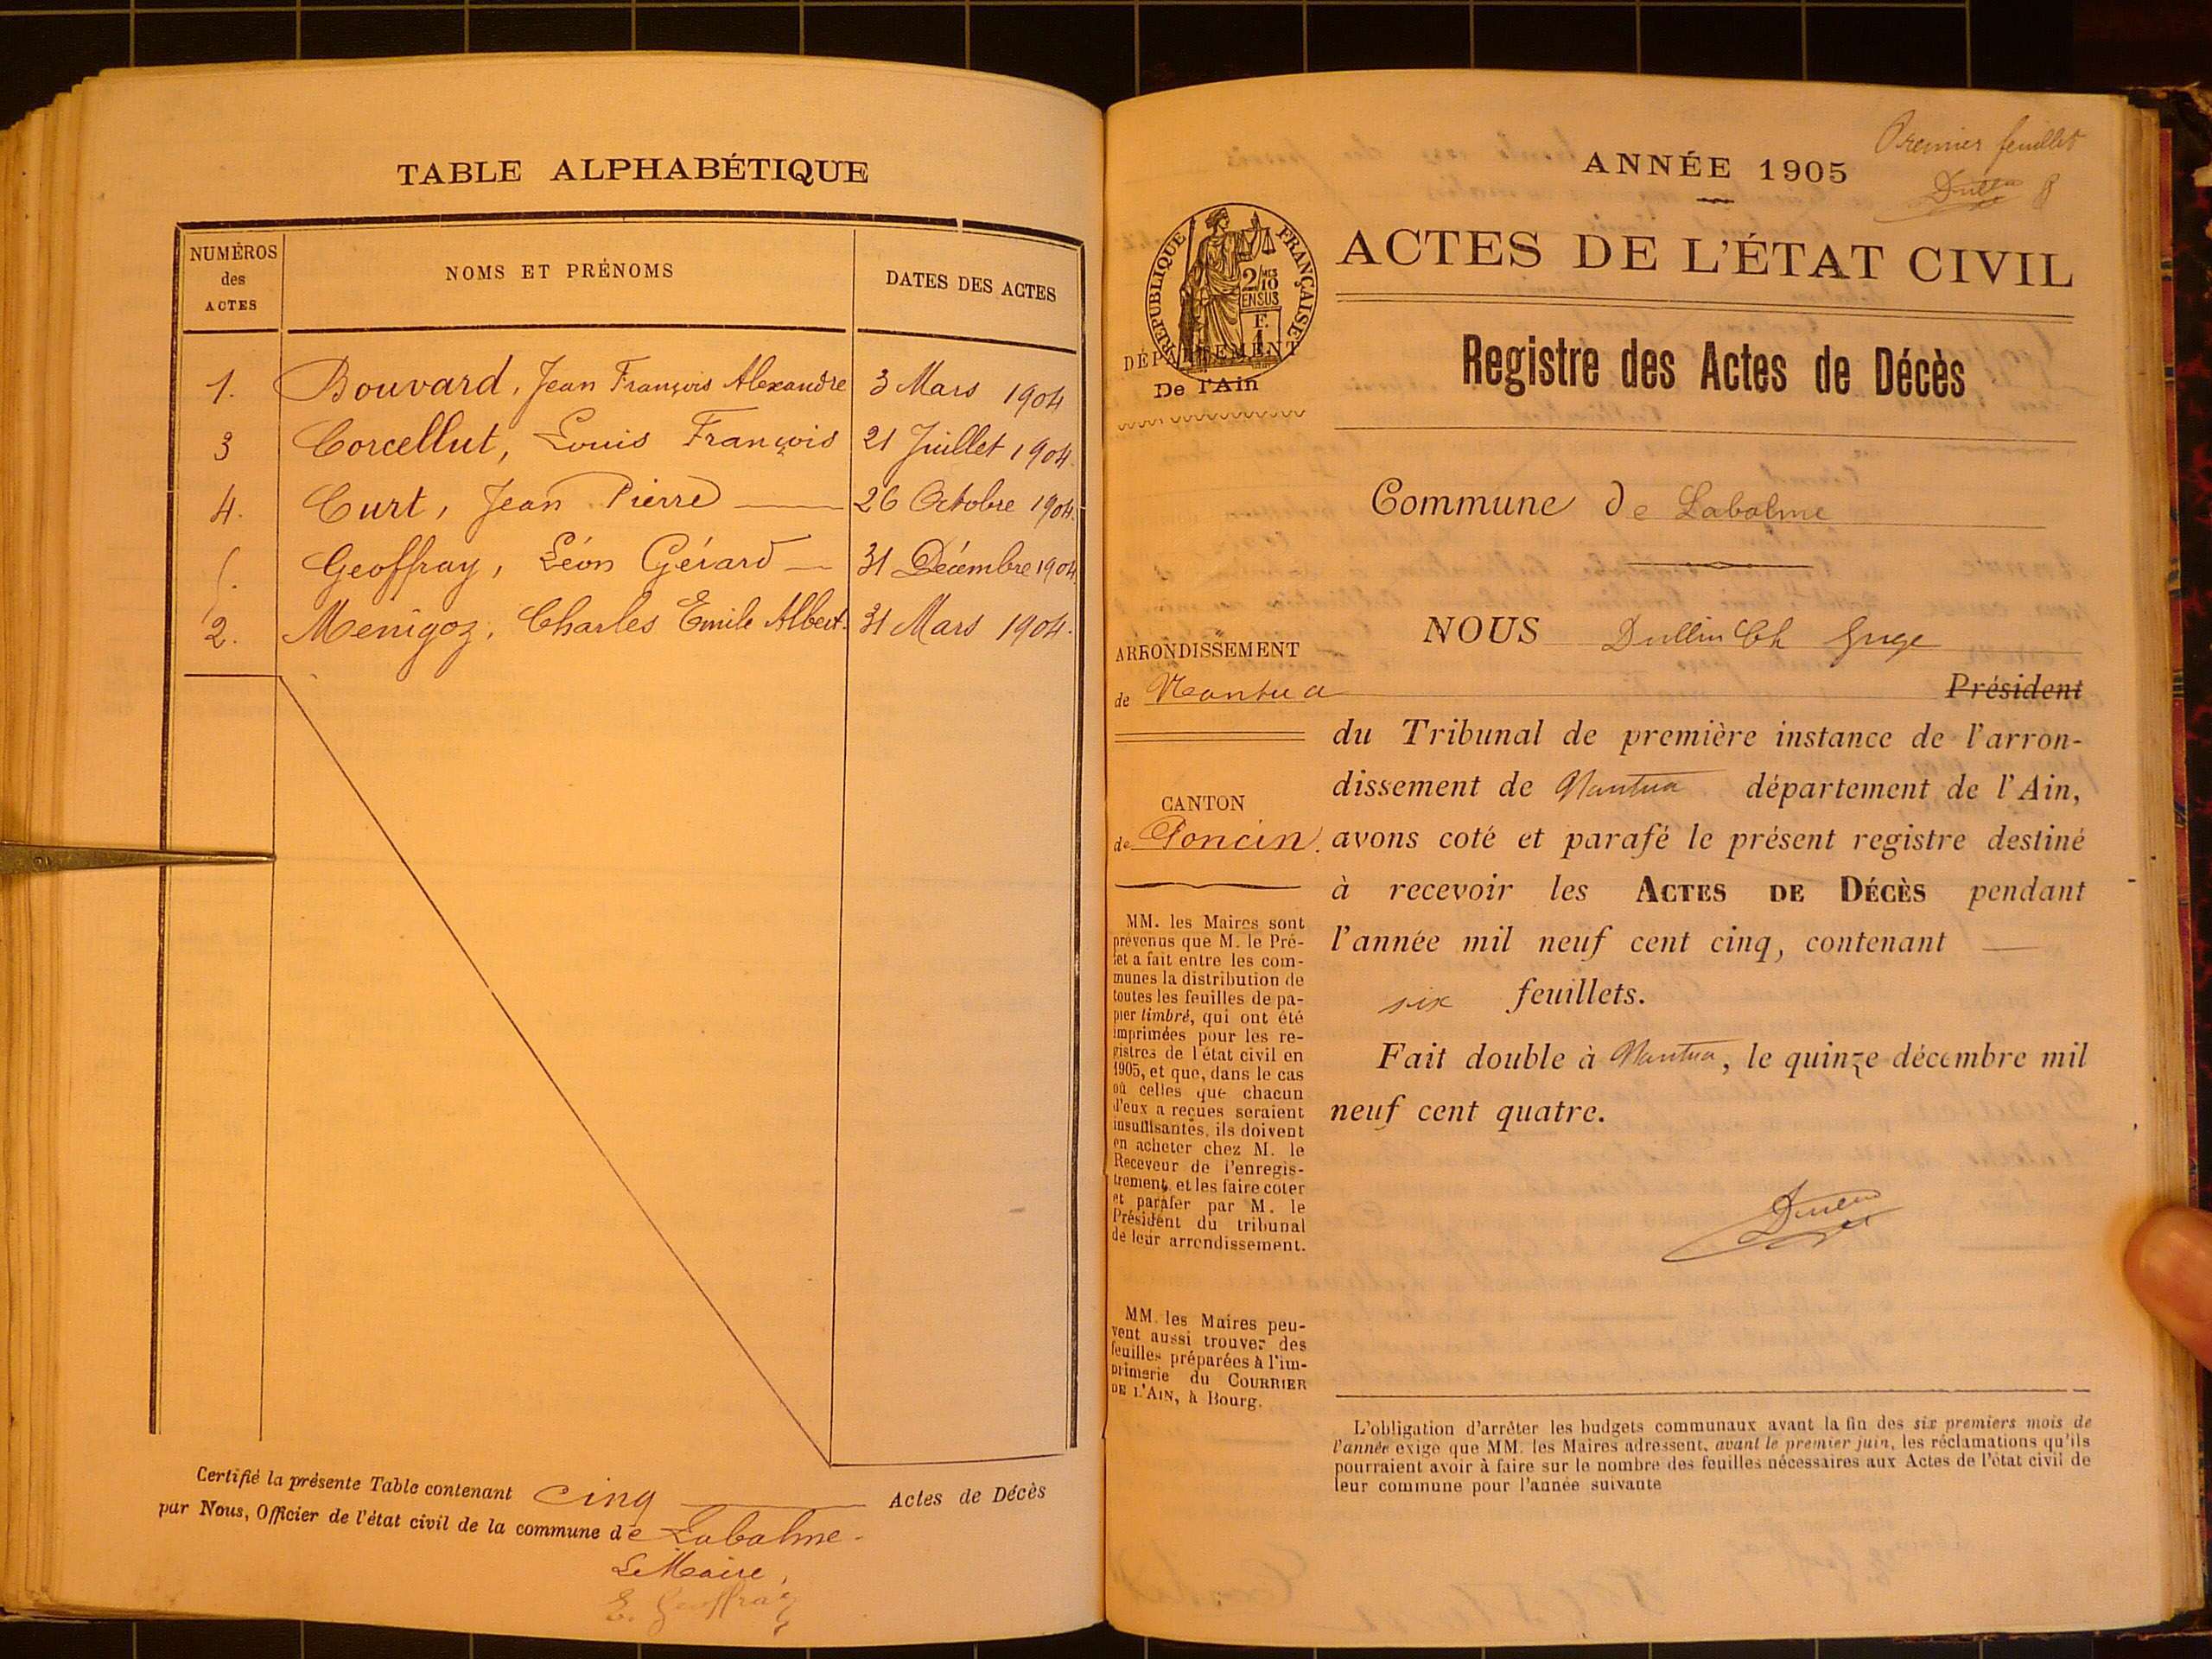 TABLE ALPHABÉTIQUE
NUMÉROS des ACTES
NOMS ET PRÉNOMS
DATES DES ACTES
1. Bouvard, Jean François Alexandre 3 Mars 1904
3 Corcellut, Louis François 21 Juillet 1904.
4. Curt, Jean Pierre 26 Octobre 1904.
5. Geoffray, Léon Gérard 31 Décembre 1904
2. Menigoz, Charles Emile Albert. 31 Mars 1904.
Certifié la présente Table contenant cinq Actes de Décès
par Nous, Officier de l'état civil de la commune de Labalme.
Le Maire,
E. Geoffray
Premier feuillet
ANNÉE 1905
RÉPUBLIQUE FRANÇAISE
2/10
EN SUS
F.
1
DÉPARTEMENT
De l'Ain
ACTES DE L'ÉTAT CIVIL
Registre des Actes de Décès
Commune de Labalme
ARRONDISSEMENT
de Nantua
CANTON
de Poncin.
MM. les Maires sont
prévenus que M. le Pré-
fet a fait entre les com-
munes la distribution de
toutes les feuilles de pa-
pier timbré, qui ont été
imprimées pour les re-
gistres de l'état civil en
1905, et que, dans le cas
où celles que chacun
d'eux a reçues seraient
insuffisantes, ils doivent
en acheter chez M. le
Receveur de l'enregis-
trement, et les faire coter
et parafer par M. le
Président du tribunal
de leur arrondissement.
MM. les Maires peu-
vent aussi trouver des
feuilles préparées à l'im-
primerie du COURRIER
DE L'AIN, à Bourg.
NOUS Dullin Ch Juge
Président
du Tribunal de première instance de l'arron-
dissement de Nantua département de l'Ain,
avons coté et parafé le présent registre destiné
à recevoir les ACTES DE DÉCÈS pendant
l'année mil neuf cent cinq, contenant
six feuillets.
Fait double à Nantua, le quinze décembre mil
neuf cent quatre.
L'obligation d'arrêter les budgets communaux avant la fin des six premiers mois de
l'année exige que MM. les Maires adressent, avant le premier juin, les réclamations qu'ils
pourraient avoir à faire sur le nombre des feuilles nécessaires aux Actes de l'état civil de
leur commune pour l'année suivante